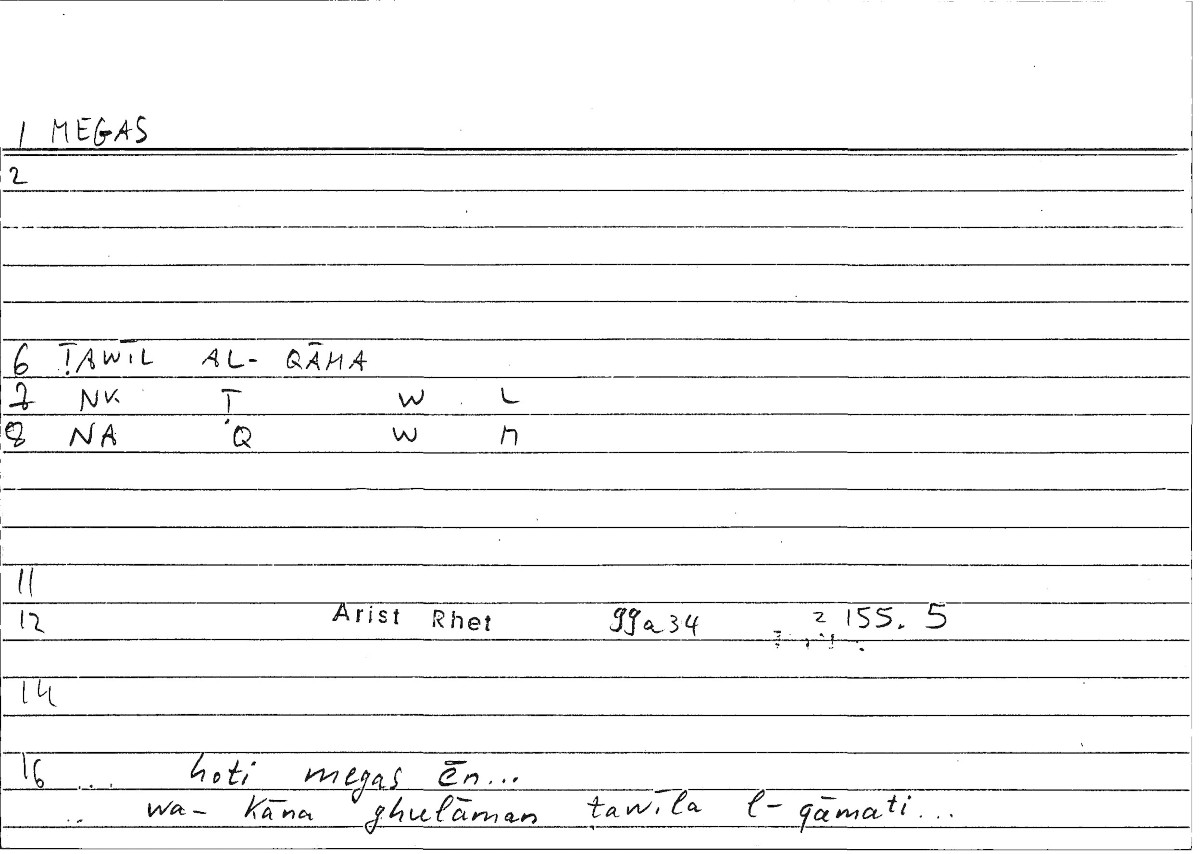 1 MEGAS
2
6 ṬAWĪL AL- QĀMA
7 NK Ṭ W L
8 NA Q W M
11
12 Arist Rhet 99a34 2 155. 5
14
16 ... hoti megas ēn...
.. wa- Kāna ghulāman tawīla l- qāmati...